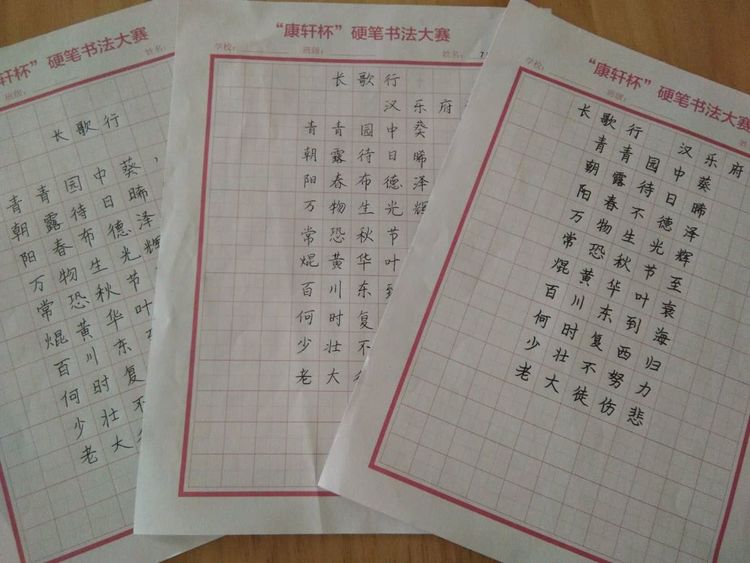 轩杯”硬笔书法大赛
班级: 姓名:
长歌行
青青园中葵,
朝露待日晞
阳春布德泽
万物生光辉
常恐秋节
焜黄华叶
百川东
何时复
少壮不
老大
“康轩杯”硬笔书法大赛
学校: 班级: 姓名:
长歌行
汉乐府
青青园中葵
朝露待日晞
阳春布德泽
万物生光辉
常恐秋节
焜黄华叶
百川东到
何时复
少壮不
老大
“康轩杯”硬笔书法大赛
学校: 班级:
长歌行 汉乐府
青青园中葵
朝露待日晞
阳春不德泽
万物生光辉
常恐秋节至
焜黄华叶衰
百川东到海
何时复西归
少壮不努力
老大徒伤悲